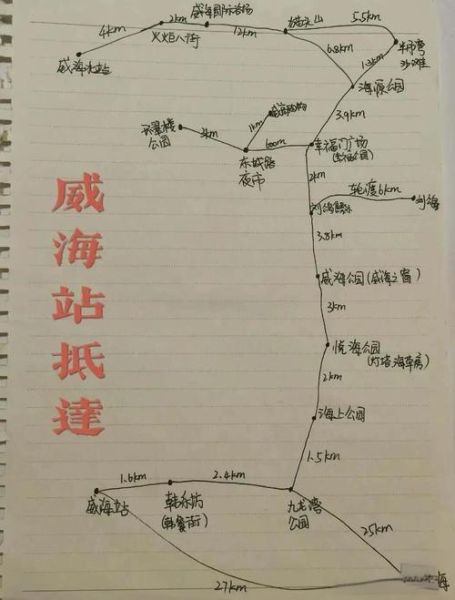 威海国际浴场
2km
12km
猫头山
5.5km
4km
火炬八街
半月湾
沙滩
6.8km
1.3km
威海北站
海源公园
3.9km
1km
公园
3km
东城路
夜市
600m
幸福门广场
2km
轮渡6km
3.8km
威海公园(威海之窗)
3km
悦海公园
(灯塔,海草房)
2km
海上公园
1.5km
1.6km
2.4km
威海站
韩乐坊
(韩餐街)
九龙湾
公园
25km
27km
海
威海站抵達